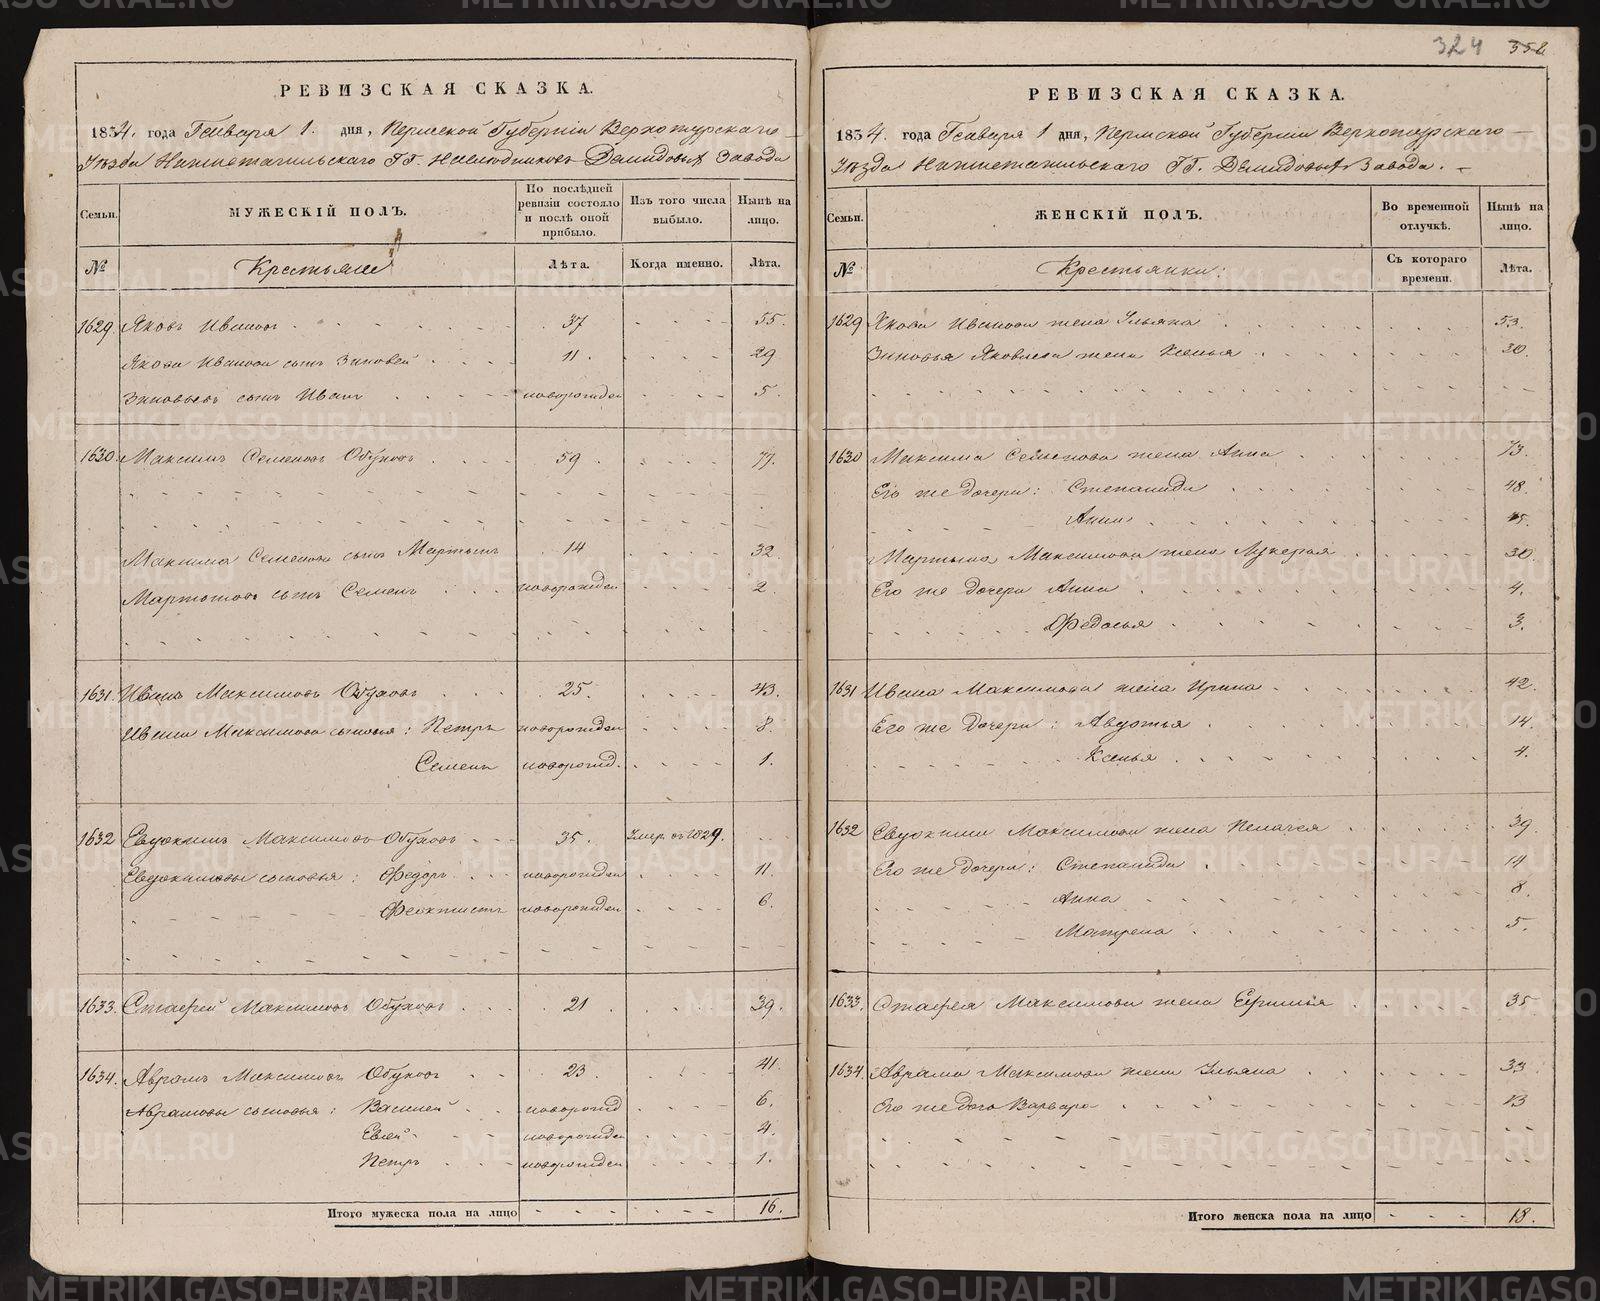 324 352
РЕВИЗСКАЯ СКАЗКА.
1834. года Генваря 1. дня, Пермской Губерніи Верхотурскаго
Уѣзда Нижнетагильскаго ГГ. Наслѣдниковъ Демидовыхъ Завода
Семьи. МУЖЕСКІЙ ПОЛЪ. По послѣдней ревизіи состояло и послѣ оной прибыло. Изъ того числа выбыло. Нынѣ на лицо.
№ Крестьяне Лѣта. Когда именно. Лѣта.
1629. Яковъ Ивановъ 37 55.
Якова Иванова сынъ Зиновей 11. 29
Зиновьевъ сынъ Иванъ новорожден 5.
1630. Максимъ Семеновъ Обуховъ 59. 77.
Максима Семенова сынъ Мартынъ 14 32.
Мартыновъ сынъ Семенъ новорожден 2.
1631. Иванъ Максимовъ Обуховъ 25. 43.
Ивана Максимова сыновья: Петръ новорожден 8.
Семенъ новорожд. 1.
1632 Евдокимъ Максимовъ Обуховъ 35. Умер. въ 1829.
Евдокимовы сыновья: Федоръ новорожден 11.
Феоктистъ новорожден 6.
1633. Стафей Максимовъ Обуховъ 21 39.
1634. Аврамъ Максимовъ Обуховъ 23. 41.
Аврамовы сыновья: Василей новорожд 6.
Евсей новорожден 4.
Петръ новорожден 1.
Итого мужеска пола на лицо 16.
РЕВИЗСКАЯ СКАЗКА.
1834. года Генваря 1 дня, Пермской Губерніи Верхотурскаго
Уѣзда Нижнетагильскаго ГГ. Демидовыхъ Завода.
Семьи. ЖЕНСКІЙ ПОЛЪ. Во временной отлучкѣ. Нынѣ на лицо.
№ Крестьянки: Съ котораго времени. Лѣта.
1629 Якова Иванова жена Ульяна 53.
Зиновья Яковлева жена Ксенья 30.
1630 Максима Семенова жена Анна 73.
Его же дочери: Степанида 48.
Анна 45.
Мартына Максимова жена Лукерья 30.
Его же дочери Анна 4.
Федосья 3.
1631 Ивана Максимова жена Ирина 42.
Его же дочери: Авдотья 14.
Ксенья 4.
1632 Евдокима Максимова жена Пелагея 39.
Его же дочери: Степанида 14
Анна 8.
Матрена 5.
1633. Стафея Максимова жена Ефимья 35
1634. Аврама Максимова жена Ульяна 33
Его же дочь Варвара 13
Итого женска пола на лицо 18.
METRIKI.GASO-URAL.RU